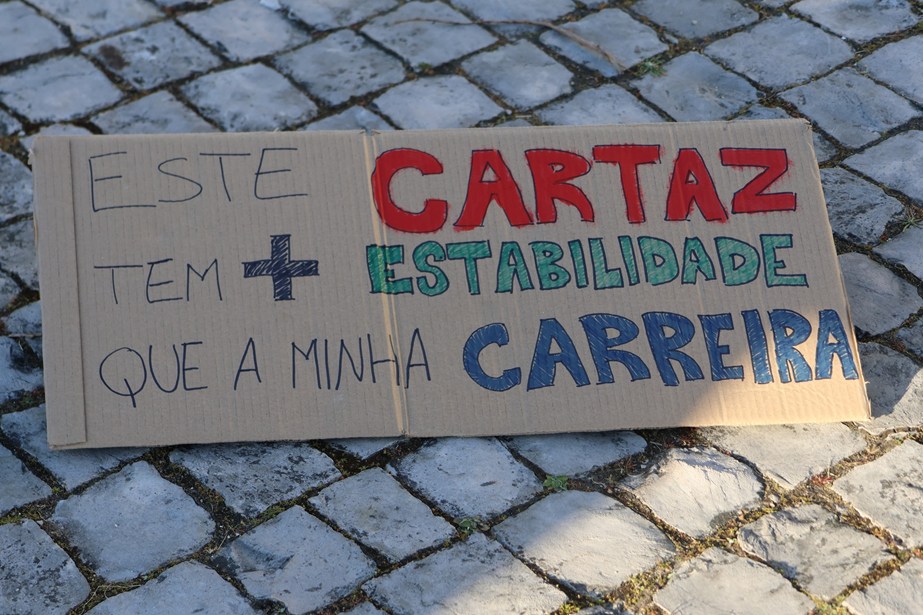 ESTE CARTAZ
TEM + ESTABILIDADE
QUE A MINHA CARREIRA